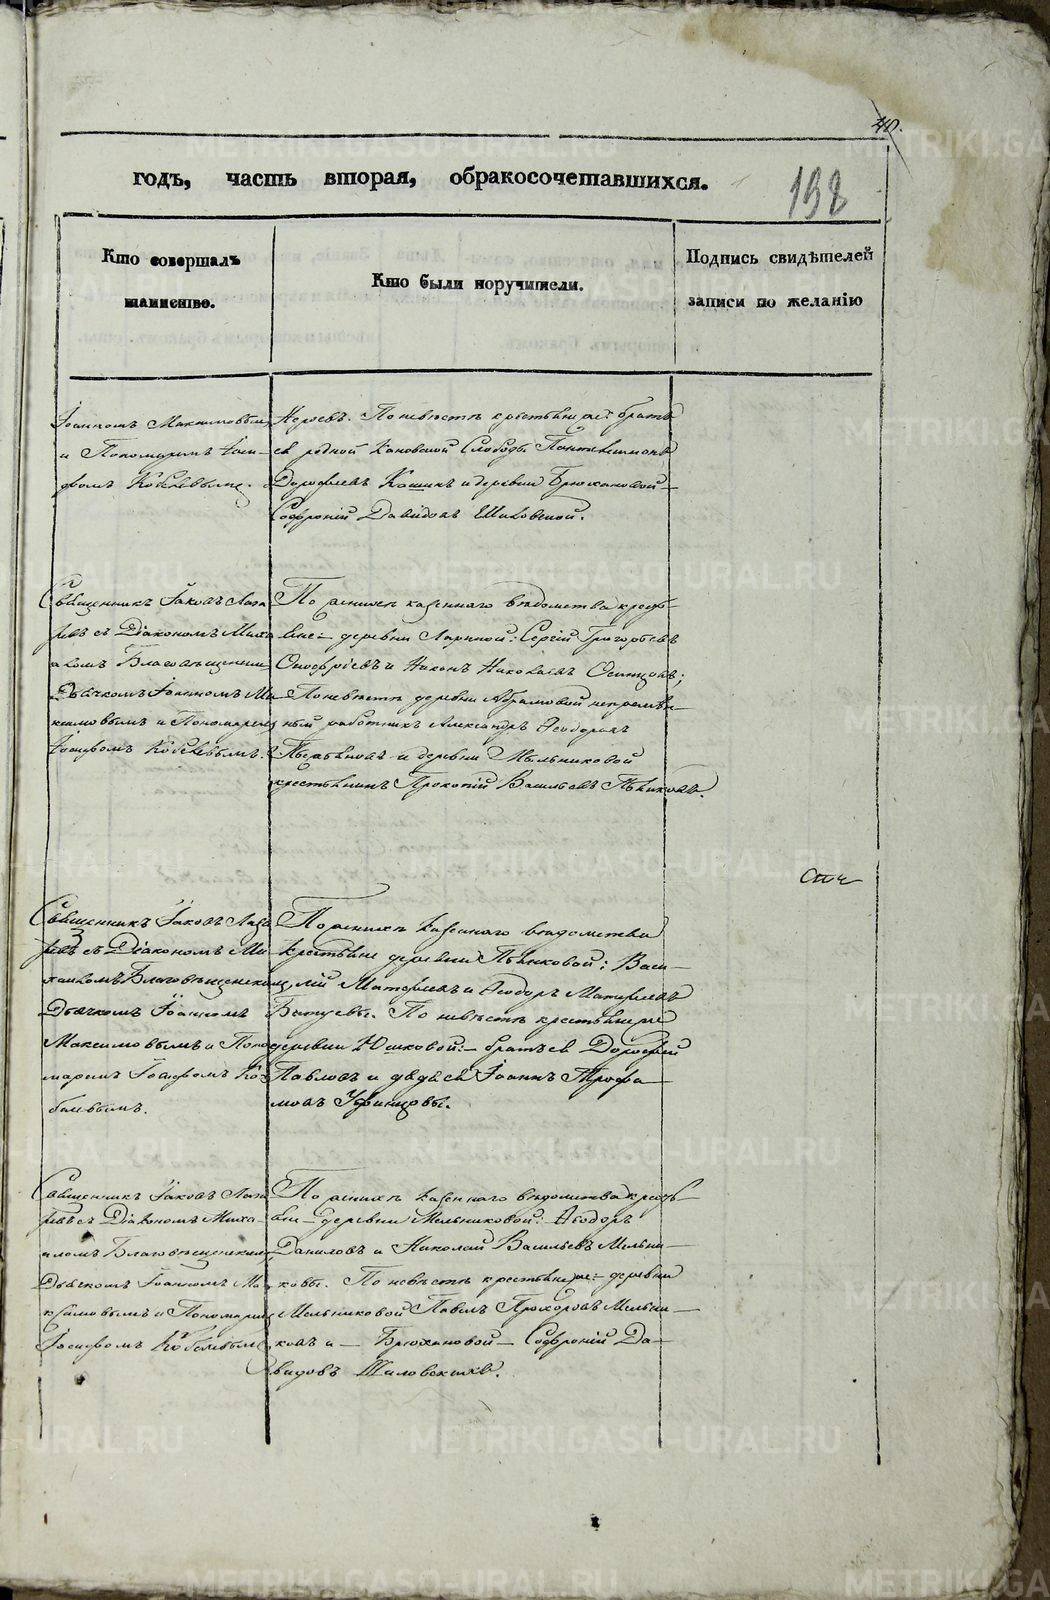 40.
198
годъ, часть вторая, обракосочетавшихся.
Кто совершалъ
таинство.
Кто были поручители.
Подпись свидѣтелей
записи по желанію
Іоанномъ Максимовымъ
и Пономаремъ Іоси-
фомъ
По невѣстѣ крестьяне братъ
ея родной Слободы
Дорофеевъ Кошинъ и деревни Брюхановой
Софроній Давидовъ Шиловской.
Священникъ Іаковъ Лаза
ревъ съ Діакономъ Миха
иломъ Благовѣщенским
Дьячкомъ Іоанномъ Ма
ксимовымъ и Пономаремъ
Іосифомъ
По женихѣ казеннаго вѣдомства крестья
не деревни Лариной: Сергій Григорьевъ
и Никонъ Николаевъ
По невѣстѣ деревни Абрамовой непремѣн
ный работникъ Александръ Ѳеодоровъ
и деревни Мельниковой
крестьянинъ Прокопій Васильевъ Пьянковъ.
Священникъ Іаковъ Лаза
ревъ съ Діакономъ Ми
хаиломъ Благовѣщенским
Дьячкомъ Іоанномъ
Максимовымъ и Поно
маремъ Іосифомъ Ко
По женихѣ казеннаго вѣдомства
крестьяне деревни Пьянковой: Васи-
лій Матфеевъ и Ѳеодоръ Матфеевъ
По невѣстѣ крестьяне
деревни Юшковой: братъ ея Дорофей
Павловъ и дядя ея Іоаннъ Трофи
мовъ Уфинцовы.
Священникъ Іаковъ Лаза
ревъ съ Діакономъ Миха-
иломъ Благовѣщенским
Дьячкомъ Іоанномъ Ма
ксимовымъ и Пономаремъ
Іосифомъ
По женихѣ казеннаго вѣдомства крестья
не деревни Мельниковой: Ѳеодоръ
Даниловъ и Николай Васильевъ Мельни-
ковы. По невѣстѣ крестьяне деревни
Мельниковой Павелъ Прохоровъ Мельни-
ковъ и Брюхановой Софроній Да-
видовъ Шиловскихъ.
METRIKI.GASO-URAL.RU